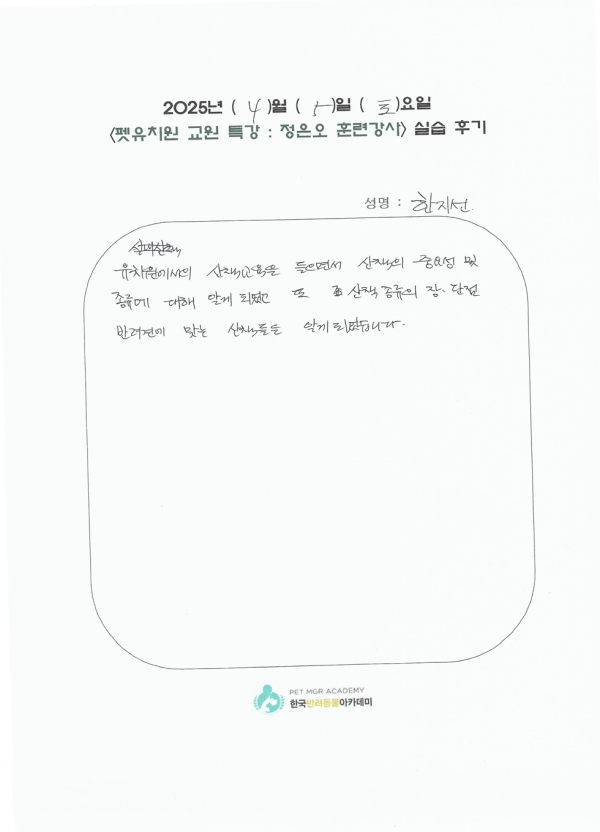 2025년 ( 4 )월 ( 5 )일 ( 토 )요일
<펫유치원 교원 특강 : 정은오 훈련강사> 실습 후기
성명 : 한지선.
유치원에서의 산책교육을 들으면서 산책의 중요성 및
종류에 대해 알게 되었고 또 산책 종류의 장.단점
반려견에 맞는 산책들을 알게 되었습니다.
PET MGR ACADEMY
한국반려동물아카데미